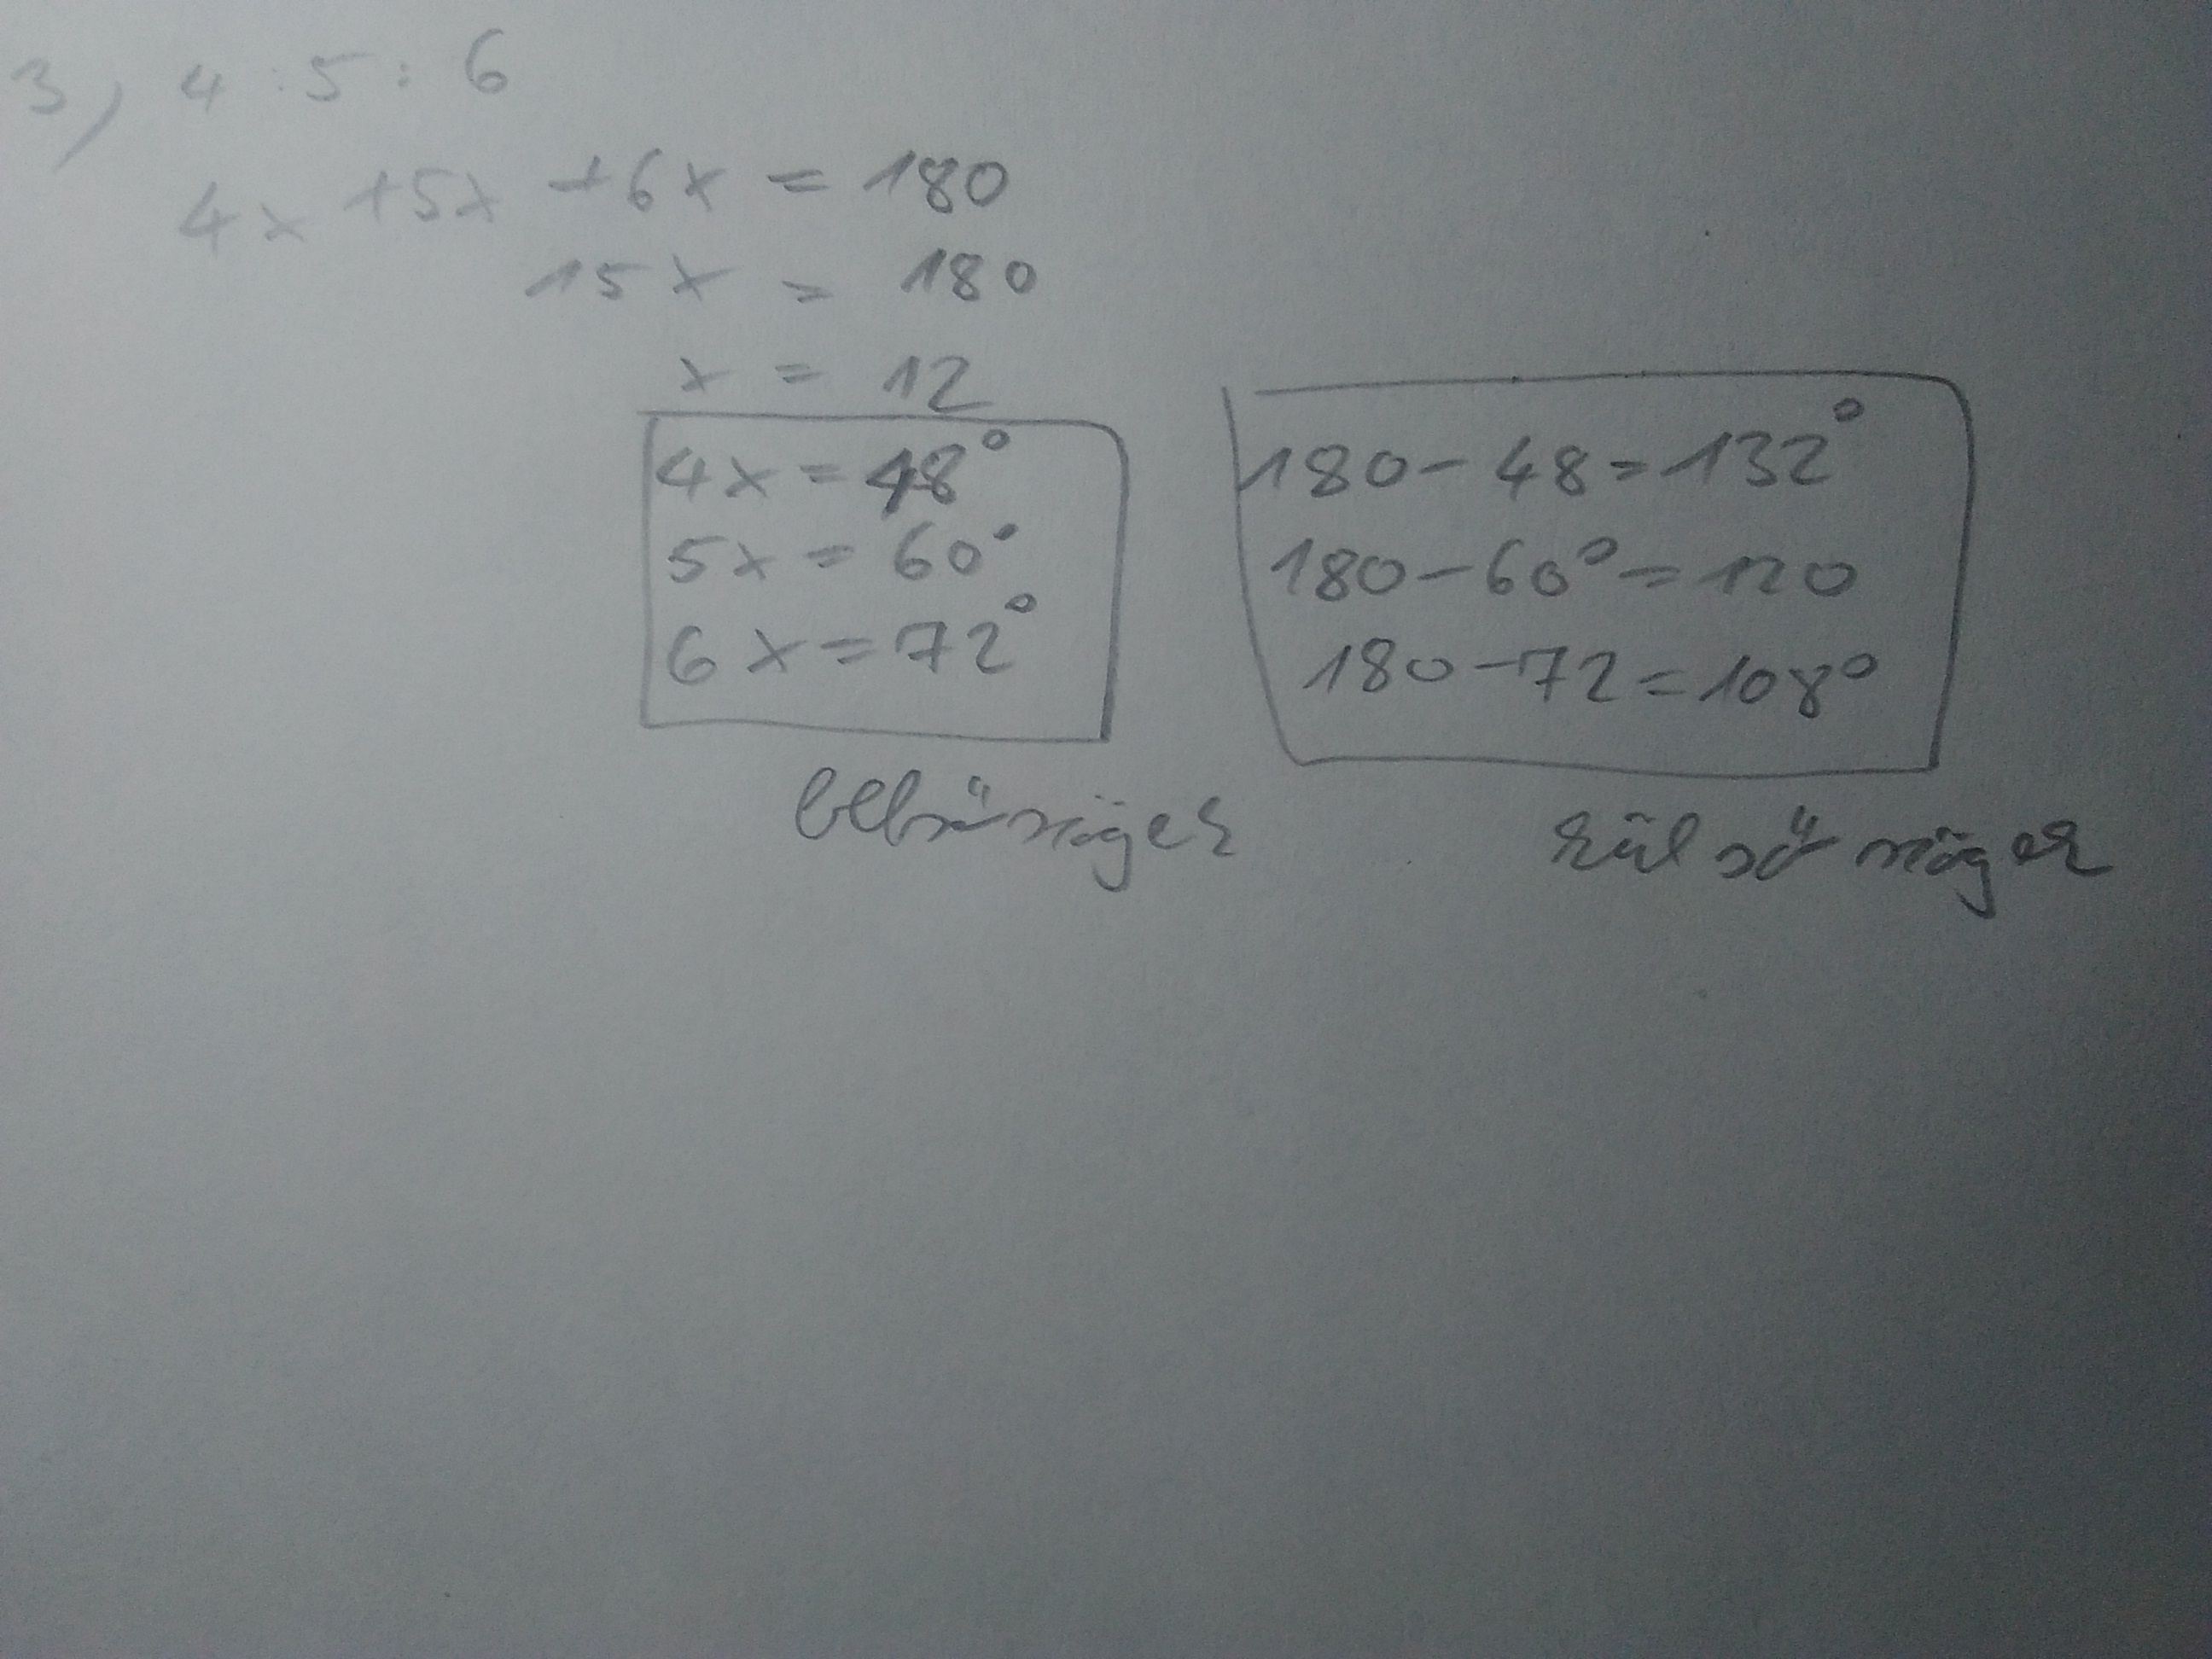 3, 4 : 5 : 6
4x + 5x + 6x = 180
15x = 180
x = 12
4x = 48°
5x = 60°
6x = 72°
belső szögek
180 - 48 = 132°
180 - 60° = 120
180 - 72 = 108°
külső szögek